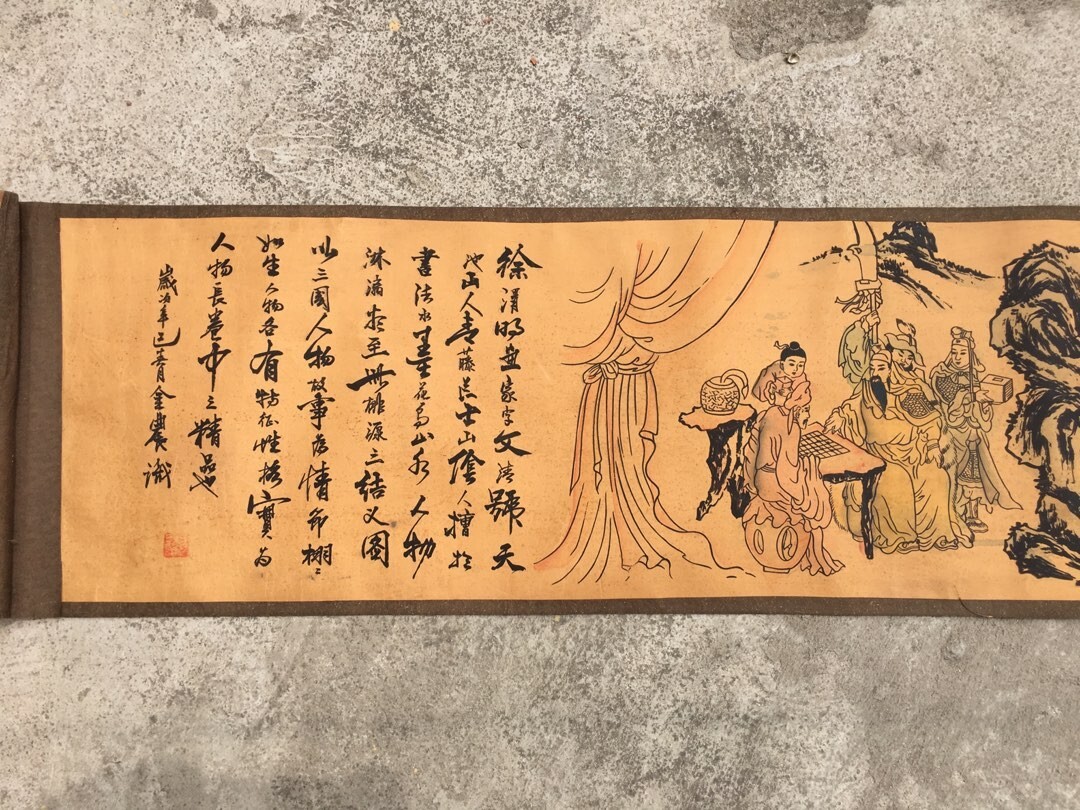 徐渭明画家字文清號天
池山人青藤居士山陰人擅於
書法水墨花鳥山水人物
淋漓盡至此桃源三結义圖
以三國人物故事为情節栩〻
如生人物各有特征性格實为
人物長卷中之精品
歲次辛巳青金農識